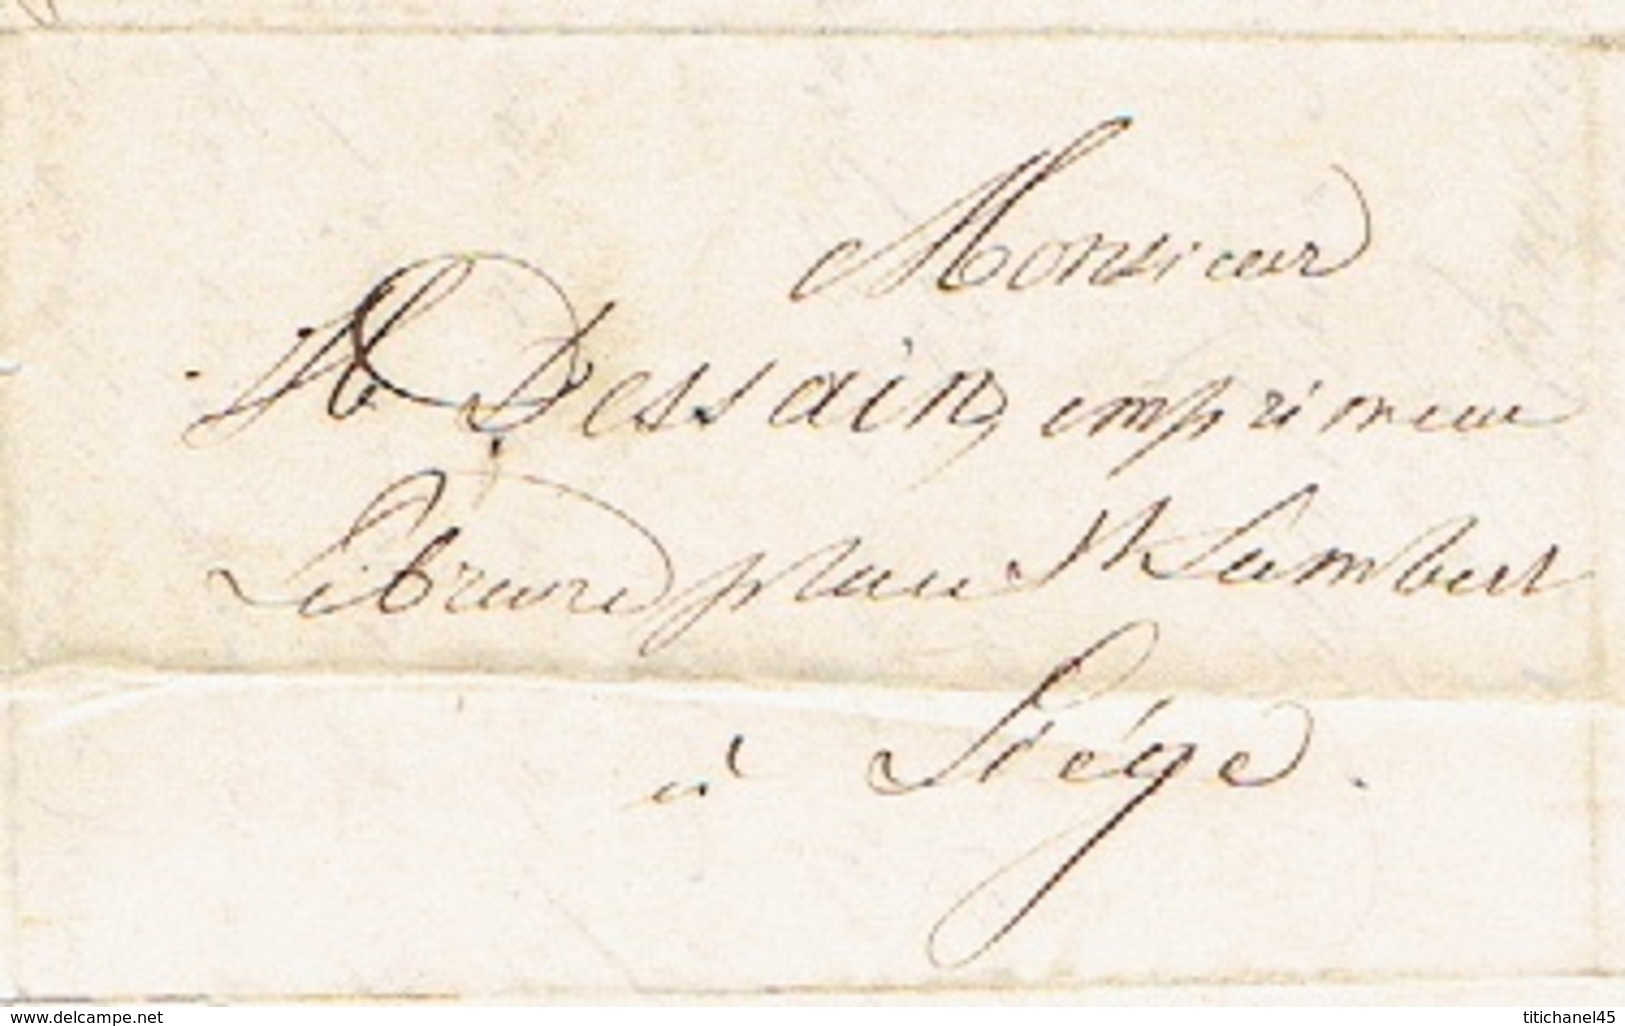 Monsieur
H. Dessain, imprimeur
Libraire place St Lambert
à Liége.
www.delcampe.net
titichanel45